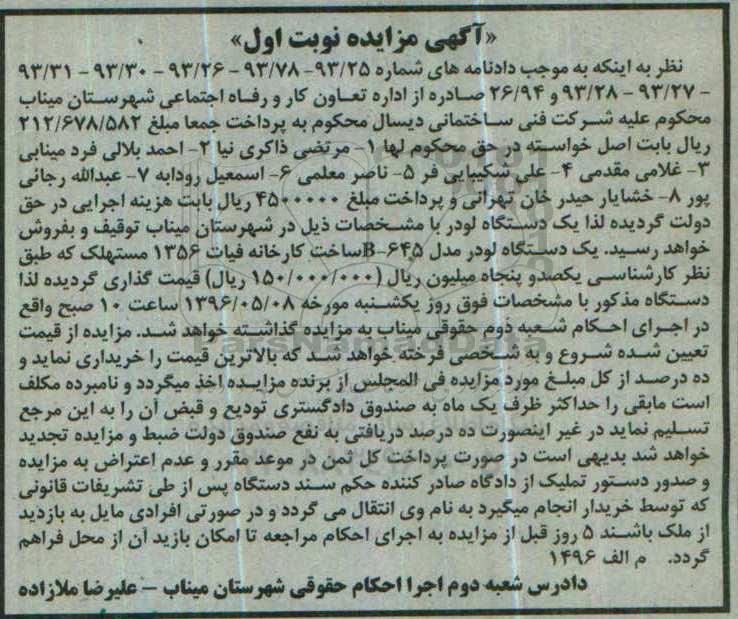 «آگهی مزایده نوبت اول»
نظر به اینکه به موجب دادنامه های شماره ۹۳/۲۵- ۹۳/۷۸ - ۹۳/۲۶ - ۹۳/۳۰ - ۹۳/۳۱
- ۹۳/۲۷ - ۹۳/۲۸ و ۲۶/۹۴ صادره از اداره تعاون کار و رفاه اجتماعی شهرستان میناب
محکوم علیه شرکت فنی ساختمانی دیسال محکوم به پرداخت جمعا مبلغ ۲۱۲/۶۷۸/۵۸۲
ریال بابت اصل خواسته در حق محکوم لها ۱- مرتضی ذاکری نیا ۲- احمد بلالی فرد مینابی
۳- غلامی مقدمی ۴- علی شکیبایی فر ۵- ناصر معلمی ۶- اسمعیل رودابه ۷- عبدالله رجائی
پور ۸- خشایار حیدر خان تهرانی و پرداخت مبلغ ۴۵۰۰۰۰۰ ریال بابت هزینه اجرایی در حق
دولت گردیده لذا یک دستگاه لودر با مشخصات ذیل در شهرستان میناب توقیف و بفروش
خواهد رسید. یک دستگاه لودر مدل ۶۴۵-Bساخت کارخانه فیات ۱۳۵۶ مستهلک که طبق
نظر کارشناسی یکصدو پنجاه میلیون ریال (۱۵۰/۰۰۰/۰۰۰ ریال) قیمت گذاری گردیده لذا
دستگاه مذکور با مشخصات فوق روز یکشنبه مورخه ۱۳۹۶/۰۵/۰۸ ساعت ۱۰ صبح واقع
در اجرای احکام شعبه دوم حقوقی میناب به مزایده گذاشته خواهد شد. مزایده از قیمت
تعیین شده شروع و به شخصی فرخته خواهد شد که بالاترین قیمت را خریداری نماید و
ده درصد از کل مبلغ مورد مزایده فی المجلس از برنده مزایده اخذ میگردد و نامبرده مکلف
است مابقی را حداکثر ظرف یک ماه به صندوق دادگستری تودیع و قبض آن را به این مرجع
تسلیم نماید در غیر اینصورت ده درصد دریافتی به نفع صندوق دولت ضبط و مزایده تجدید
خواهد شد بدیهی است در صورت پرداخت کل ثمن در موعد مقرر و عدم اعتراض به مزایده
و صدور دستور تملیک از دادگاه صادر کننده حکم سند دستگاه پس از طی تشریفات قانونی
که توسط خریدار انجام میگیرد به نام وی انتقال می گردد و در صورتی افرادی مایل به بازدید
از ملک باشند ۵ روز قبل از مزایده به اجرای احکام مراجعه تا امکان بازید آن از محل فراهم
گردد. م الف ۱۴۹۶
دادرس شعبه دوم اجرا احکام حقوقی شهرستان میناب – علیرضا ملازاده
ParsNamadData